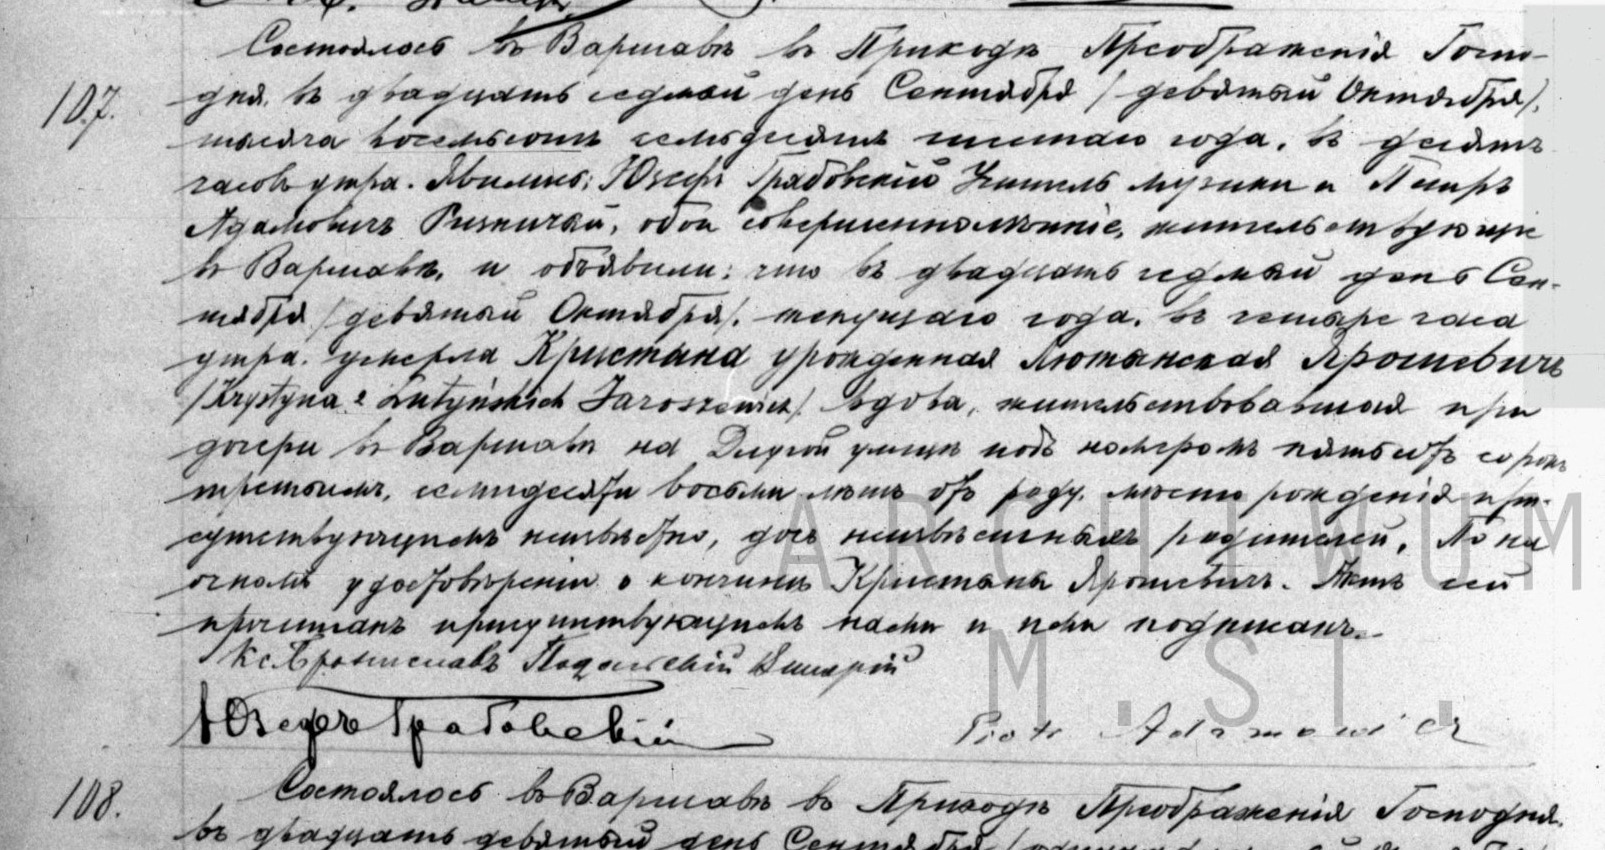 107.
Состоялось въ Варшавѣ въ Приходѣ Преображенія Госпо-
дня, въ двадцать седмый день Сентября /девятый Октября/.
тысяча восемьсотъ семьдесятъ шестаго года, въ десять
часовъ утра. Явились; Юзефъ Грабовскій Учитель музыки и Петръ
Адамовичъ обои совершеннолѣтніе, жительствующіе
въ Варшавѣ, и объявили; что въ двадцать седмый день Сен-
тября /девятый Октября/. текущаго года, въ четыре часа
утра, умерла Кристына урожденная Лютынская Ярошевичъ
/Krystyna z Lutyńskich Jaroszewicz/. вдова, жительствовавшая при
дочери въ Варшавѣ на Долгой улицѣ подъ номеромъ пятьсотъ сорокъ
третьимъ, семидесяти восьми лѣтъ отъ роду, мѣсто рожденія при-
сутствующимъ неизвѣстно, дочь неизвѣстныхъ родителей. По на
очномъ удостовѣреніи о кончинѣ Кристыны Ярошевичъ. Актъ сей
прочитанъ присутствующимъ нами и ими подписанъ.
Кс. Викарій
Юзефъ Грабовскій
Piotr Adamowicz
108.
Состоялось въ Варшавѣ въ Приходѣ Преображенія Господня,
въ двадцать девятый день Сентября
ARCHIWUM
M.ST.